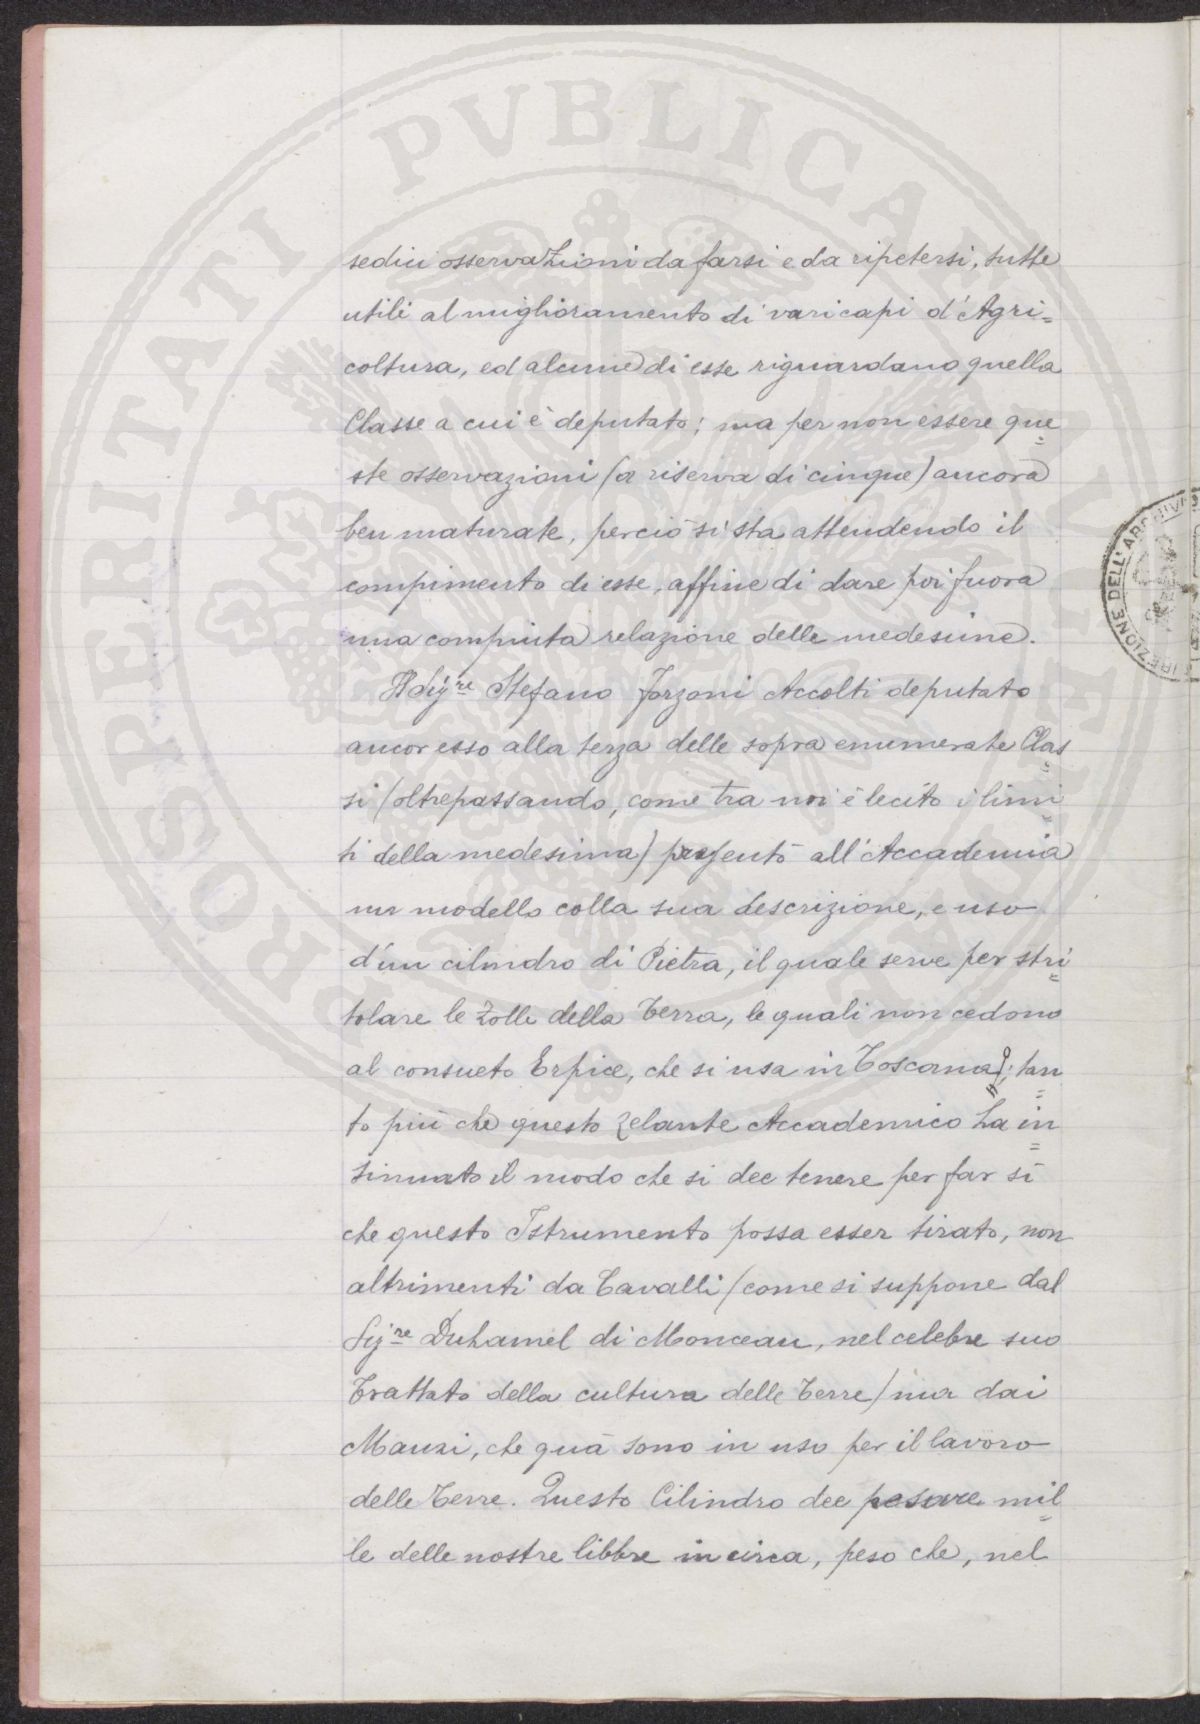 PROSPERITATI PVBLICAE AVGENDAE
sedici osservazioni da farsi e da ripetersi, tutte
utili al miglioramento di vari capi d'Agri=
coltura, ed alcune di esse riguardano quella
Classe a cui è deputato; ma per non essere que=
ste osservazioni (a riserva di cinque) ancora
ben maturate, perciò si sta attendendo il
compimento di esse, affine di dare poi fuora
una compiuta relazione delle medesime.
Il Sig.re Stefano Forzoni Accolti deputato
ancor esso alla terza delle sopra enumerate Clas=
si (oltrepassando, come tra noi è lecito i limi=
ti della medesima) presentò all'Accademia
un modello colla sua descrizione, e uso
d'un cilindro di Pietra, il quale serve per stri=
tolare le Zolle della Terra, le quali non cedono
al consueto Erpice, che si usa in Toscana; tan=
to più che questo zelante Accademico ha in=
sinuato il modo che si dee tenere per far sì
che questo Istrumento possa esser tirato, non
altrimenti da Cavalli (come si suppone dal
Sig.re Duhamel di Monceau, nel celebre suo
Trattato della cultura delle Terre) ma dai
Manzi, che quà sono in uso per il lavoro
delle Terre. Questo Cilindro dee pesare mil=
le delle nostre libbre in circa, peso che, nel
DIREZIONE DELL'ARCHIVI